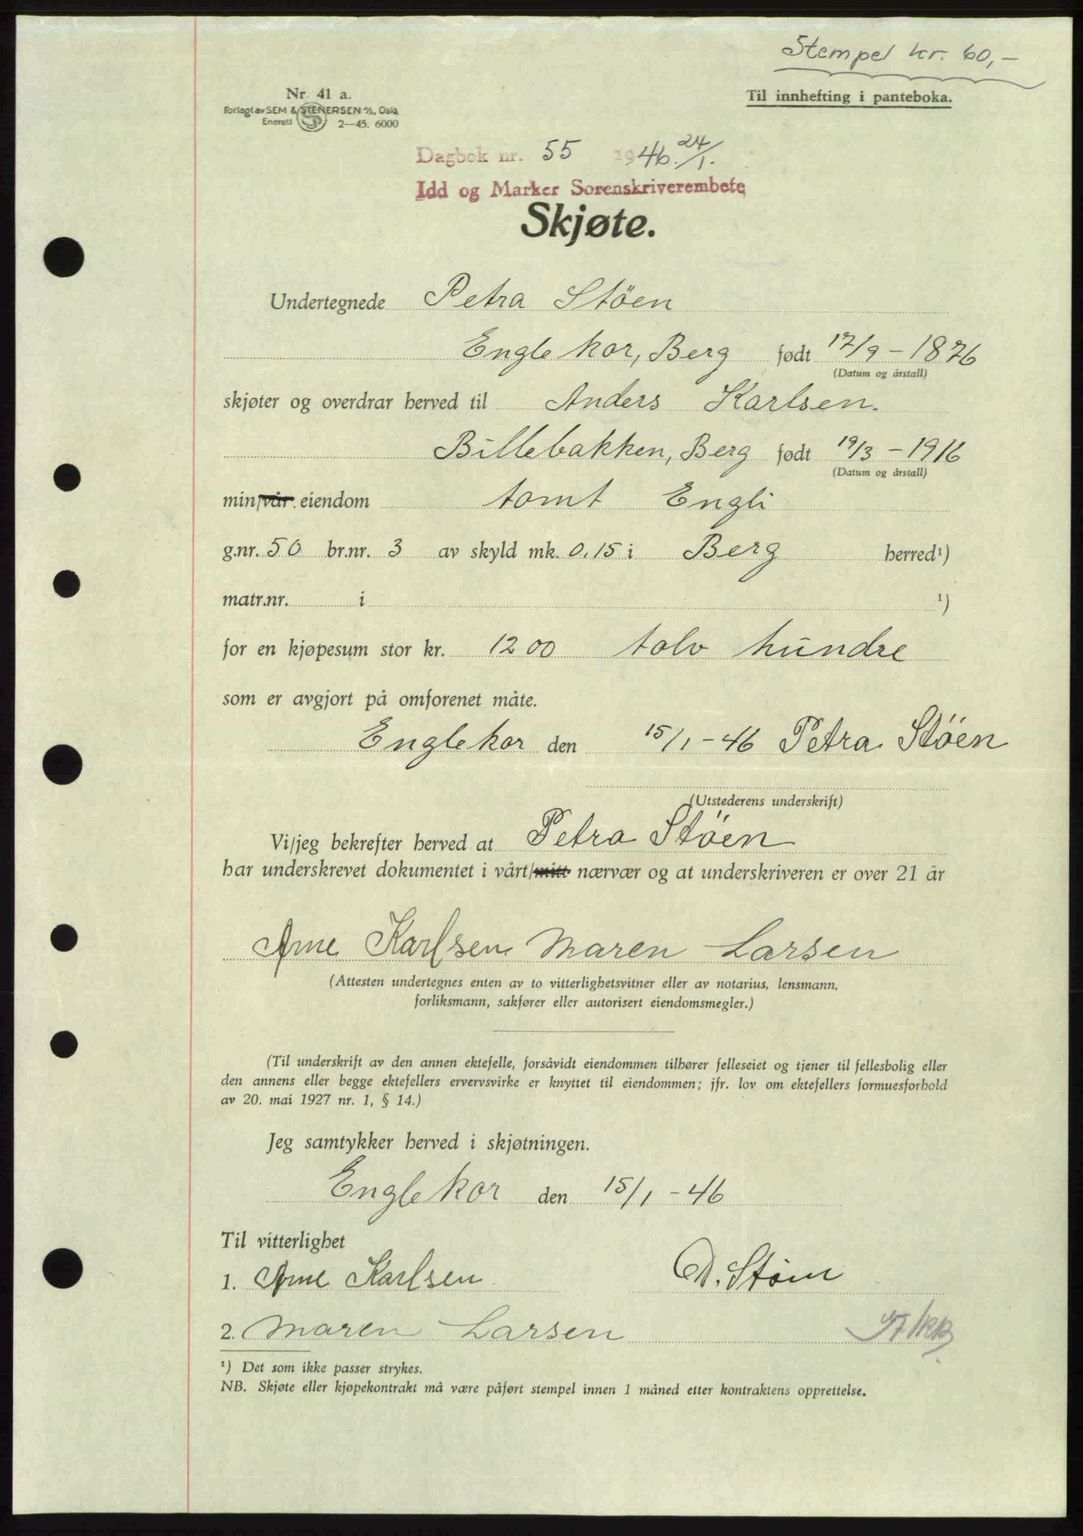 Stempel kr. 60,-
Nr. 41 a.
Forlagt av SEM & STENERSEN A/S, Oslo.
Enerett 2—45. 6000
Til innhefting i panteboka.
Dagbok nr. 55 1946. 24/1.
Idd og Marker Sorenskriverembete
Skjøte.
Undertegnede Petra Stöen
Englekor, Berg født 17/9 - 1876
(Datum og årstall)
skjøter og overdrar herved til Anders Karlsen.
Billebakken, Berg født 19/3 - 1916
(Datum og årstall)
min/vår eiendom tomt Engli
g.nr. 50 br.nr. 3 av skyld mk. 0.15 i Berg herred¹)
matr.nr. i ¹)
for en kjøpesum stor kr. 1200 tolv hundre
som er avgjort på omforenet måte.
Englekor den 15/1 - 46 Petra Stöen
(Utstederens underskrift)
Vi/jeg bekrefter herved at Petra Stöen
har underskrevet dokumentet i vårt/mitt nærvær og at underskriveren er over 21 år
Arne Karlsen Maren Larsen
(Attesten undertegnes enten av to vitterlighetsvitner eller av notarius, lensmann,
forliksmann, sakfører eller autorisert eiendomsmegler.)
(Til underskrift av den annen ektefelle, forsåvidt eiendommen tilhører felleseiet og tjener til fellesbolig eller
den annens eller begge ektefellers ervervsvirke er knyttet til eiendommen; jfr. lov om ektefellers formuesforhold
av 20. mai 1927 nr. 1, § 14.)
Jeg samtykker herved i skjøtningen.
Englekor den 15/1 - 46
Til vitterlighet
1. Arne Karlsen
2. Maren Larsen
¹) Det som ikke passer strykes.
NB. Skjøte eller kjøpekontrakt må være påført stempel innen 1 måned etter kontraktens opprettelse.